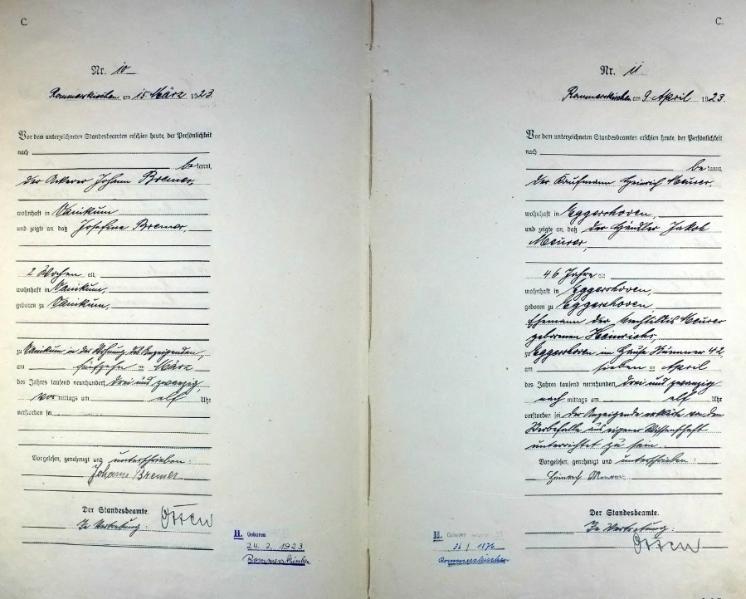 C.
Nr. 10
Rommerskirchen, am 15 März 1923
Vor dem unterzeichneten Standesbeamten erschien heute, der Persönlichkeit
nach
be kannt,
der Ackerer Johann Bremer,
wohnhaft in Vanikum
und zeigte an, daß Josefine Bremer,
2 Wochen alt,
wohnhaft in Vanikum,
geboren zu Vanikum,
zu Vanikum in der Wohnung des Anzeigenden,
am fünfzehn ten März
des Jahres tausend neunhundert drei und zwanzig,
vor mittags um elf Uhr
verstorben sei.
Vorgelesen, genehmigt und unterschrieben:
Johann Bremer
Der Standesbeamte.
In Vertretung:
H. Geboren
24. 2. 1923
Rommerskirchen
C.
Nr. 11
Rommerskirchen am 9 April 1923.
Vor dem unterzeichneten Standesbeamten erschien heute, der Persönlichkeit
nach
be kannt,
der Kaufmann Heinrich Meurer,
wohnhaft in Eggershoven,
und zeigte an, daß der Händler Jakob
Meurer,
46 Jahre alt
wohnhaft in Eggershoven,
geboren zu Eggershoven
Ehemann der Meurer
geborenen
zu Eggershoven im Hause Nummer 42,
am sieben ten April
des Jahres tausend neunhundert drei und zwanzig
nach mittags um elf Uhr
verstorben sei, der Anzeigende erklärte von dem
Sterbefalle aus eigener Wissenschaft
unterrichtet zu sein.
Vorgelesen, genehmigt und unterschrieben:
Heinrich Meurer
Der Standesbeamte.
In Vertretung:
H. Geboren
Rommerskirchen